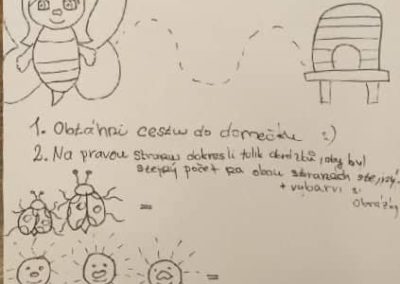 1. Obtáhni cestu do domečku :)
2. Na pravou stranu dokresli tolik obrázků, aby byl
stejný počet na obou stranách
+ vybarvi si
obrázky
=
=